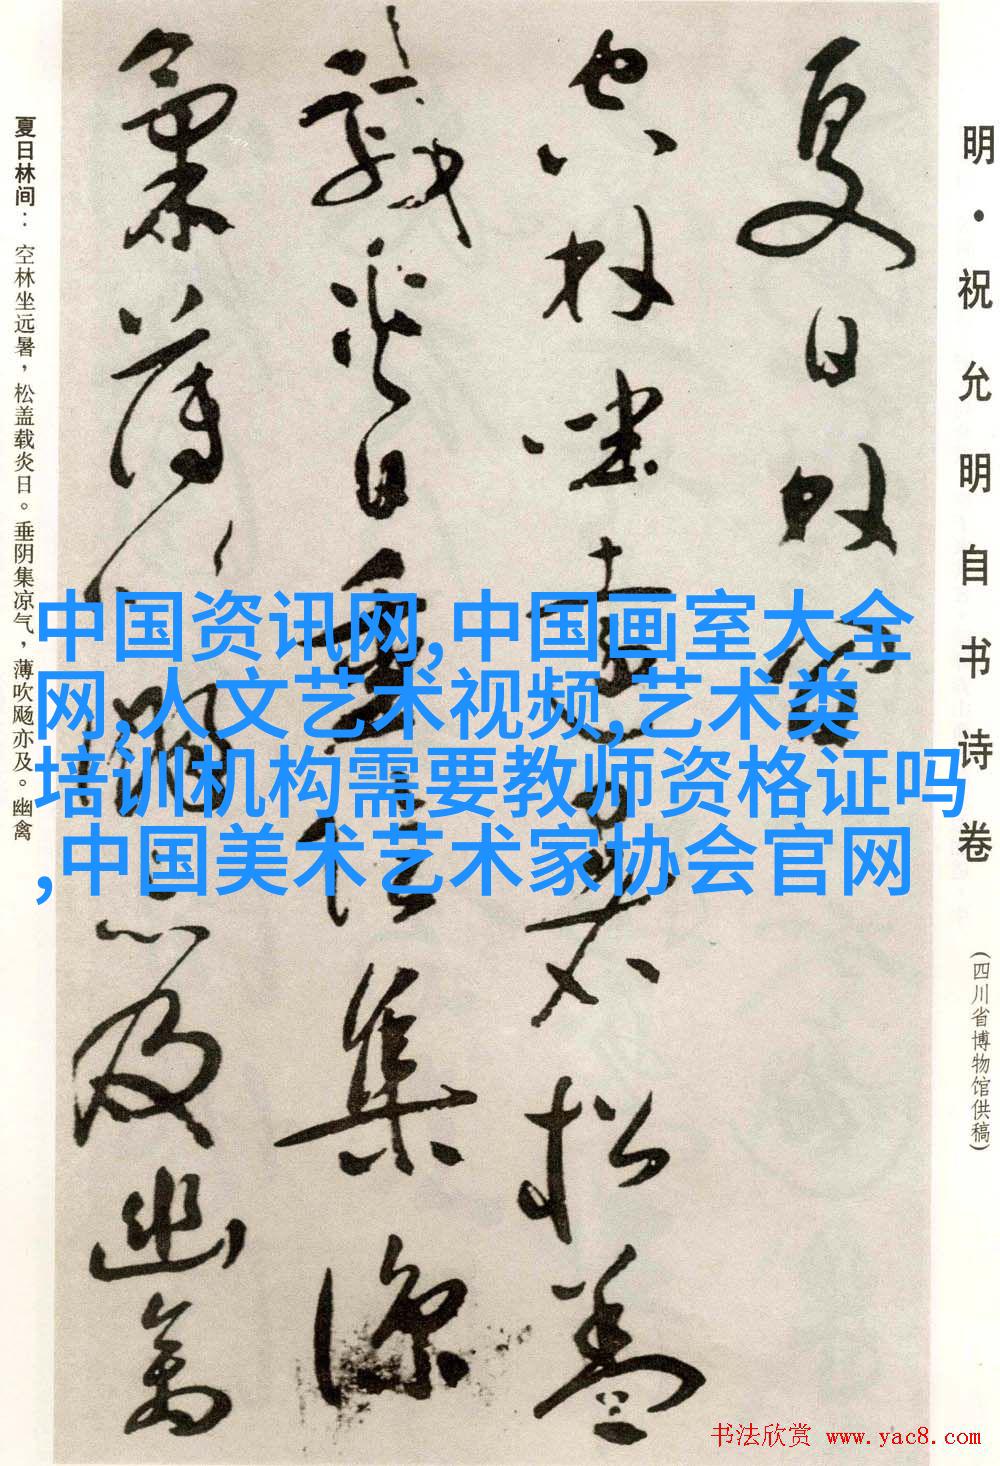 明·祝允明自书诗卷
(四川省博物馆供稿)
夏日林间
空林坐远暑松盖
载炎日垂阴集凉
气薄吹飏亦及幽禽
夏日林间：空林坐远暑，松盖载炎日。垂阴集凉气，薄吹飏亦及。幽禽
中国资讯网,中国画室大全
网,人文艺术视频,艺术类
培训机构需要教师资格证吗
,中国美术艺术家协会官网
书法欣赏 www.yac8.com